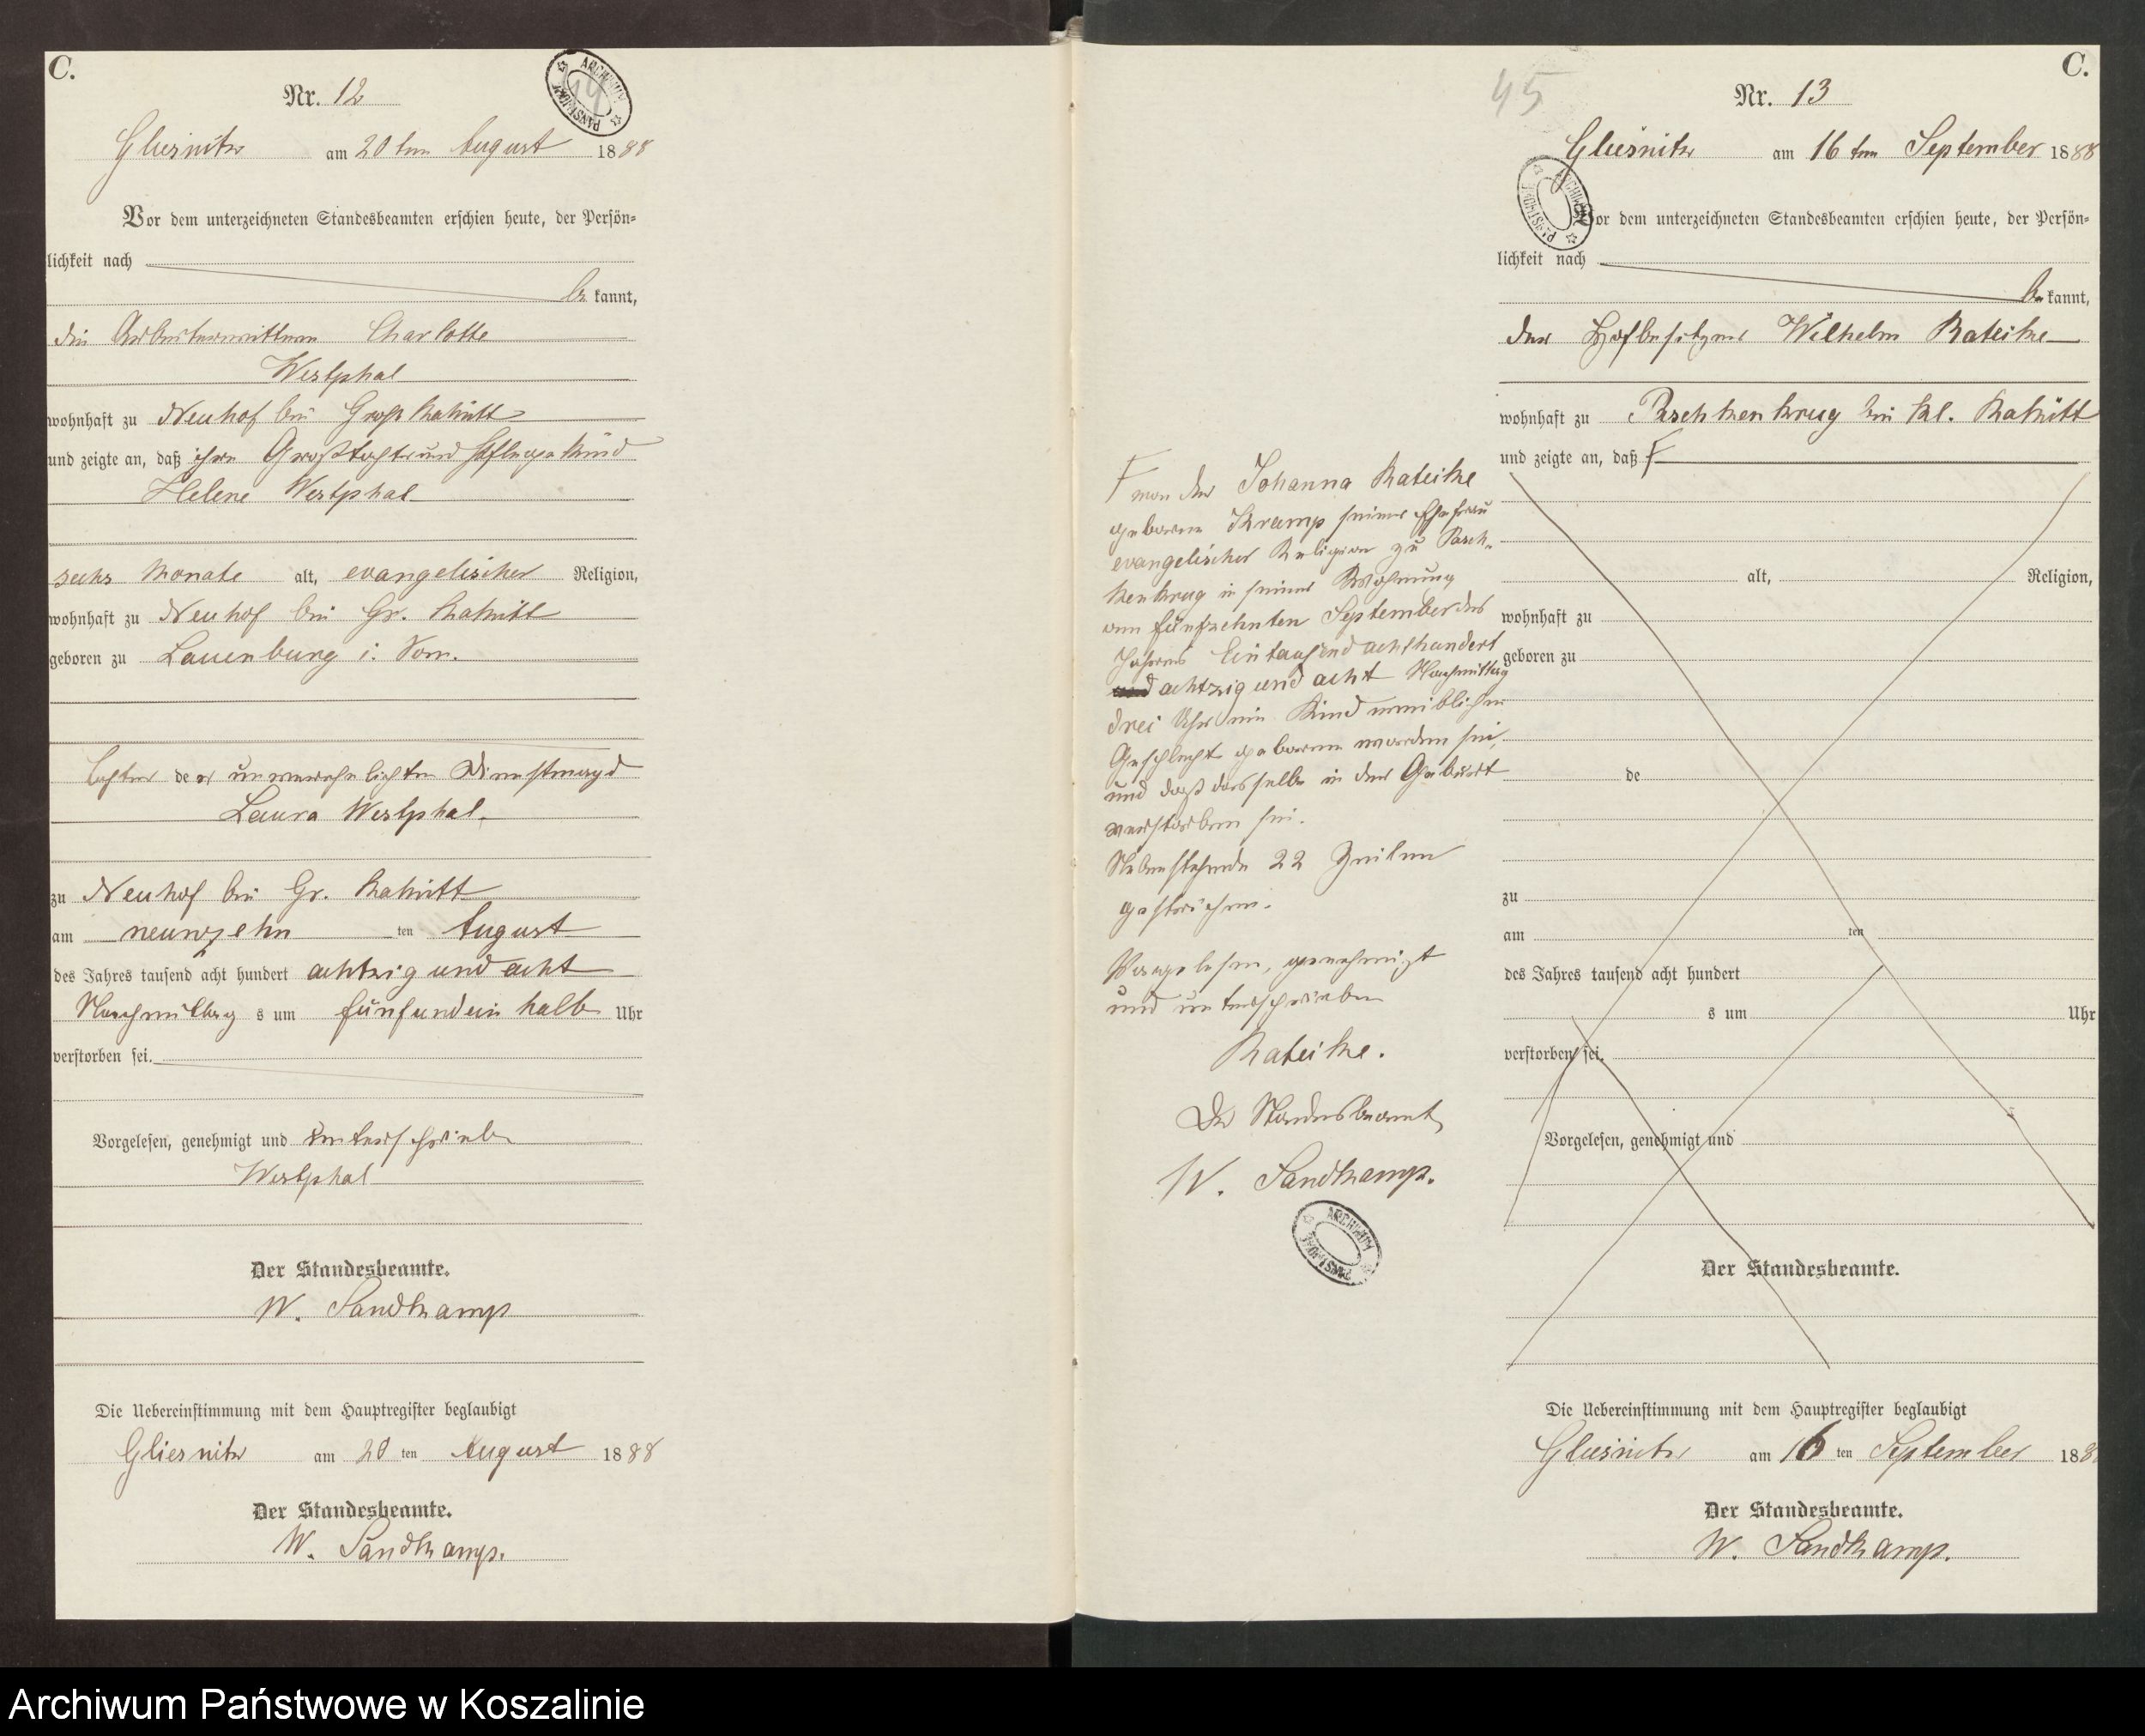 C.
Nr. 12
ARCHIWUM PAŃSTWOWE
44
Gliesnitz am 20ten August 1888
Vor dem unterzeichneten Standesbeamten erschien heute, der Persön-
lichkeit nach
be kannt,
die Arbeiterwittwe Charlotte
Westphal
wohnhaft zu Neuhof bei Groß Rakitt
und zeigte an, daß ihre Großtochter und Pflegekind
Helene Westphal
sechs Monate alt, evangelischer Religion,
wohnhaft zu Neuhof bei Gr. Rakitt
geboren zu Lauenburg i. Pom.
Tochter der unverehelichten Dienstmagd
Laura Westphal.
zu Neuhof bei Gr. Rakitt
am neunzehn ten August
des Jahres tausend acht hundert achtzig und acht
Nachmittag s um fünfundein halb Uhr
verstorben sei.
Vorgelesen, genehmigt und unterschrieben
Westphal
Der Standesbeamte.
W. Sandkamp
Die Uebereinstimmung mit dem Hauptregister beglaubigt
Gliesnitz am 20 ten August 1888
Der Standesbeamte.
W. Sandkamp.
C.
45
Nr. 13
Gliesnitz am 16ten September 1888
ARCHIWUM PAŃSTWOWE
Vor dem unterzeichneten Standesbeamten erschien heute, der Persön-
lichkeit nach
be kannt,
der Hofbesitzer Wilhelm Rateike
wohnhaft zu Paschkenkrug bei Kl. Rakitt
und zeigte an, daß F
F von der Johanna Rateike
geborene Kramp seiner Ehefrau
evangelischer Religion zu Pasch-
kenkrug in seiner Wohnung
am fünfzehnten September des
Jahres Eintausend achthundert
achtzig und acht Nachmittag
drei Uhr ein Kind weiblichen
Geschlecht geboren worden sei,
und daß dasselbe in der Geburt
verstorben sei.
Nebenstehende 22 Zeilen
gestrichen.
Vorgelesen, genehmigt
und unterschrieben
Rateike.
Der Standesbeamte
W. Sandkamp.
ARCHIWUM PAŃSTWOWE
alt, Religion,
wohnhaft zu
geboren zu
de
zu
am ten
des Jahres tausend acht hundert
s um Uhr
verstorben sei.
Vorgelesen, genehmigt und
Der Standesbeamte.
Die Uebereinstimmung mit dem Hauptregister beglaubigt
Gliesnitz am 16 ten September 188
Der Standesbeamte.
W. Sandkamp.
Archiwum Państwowe w Koszalinie